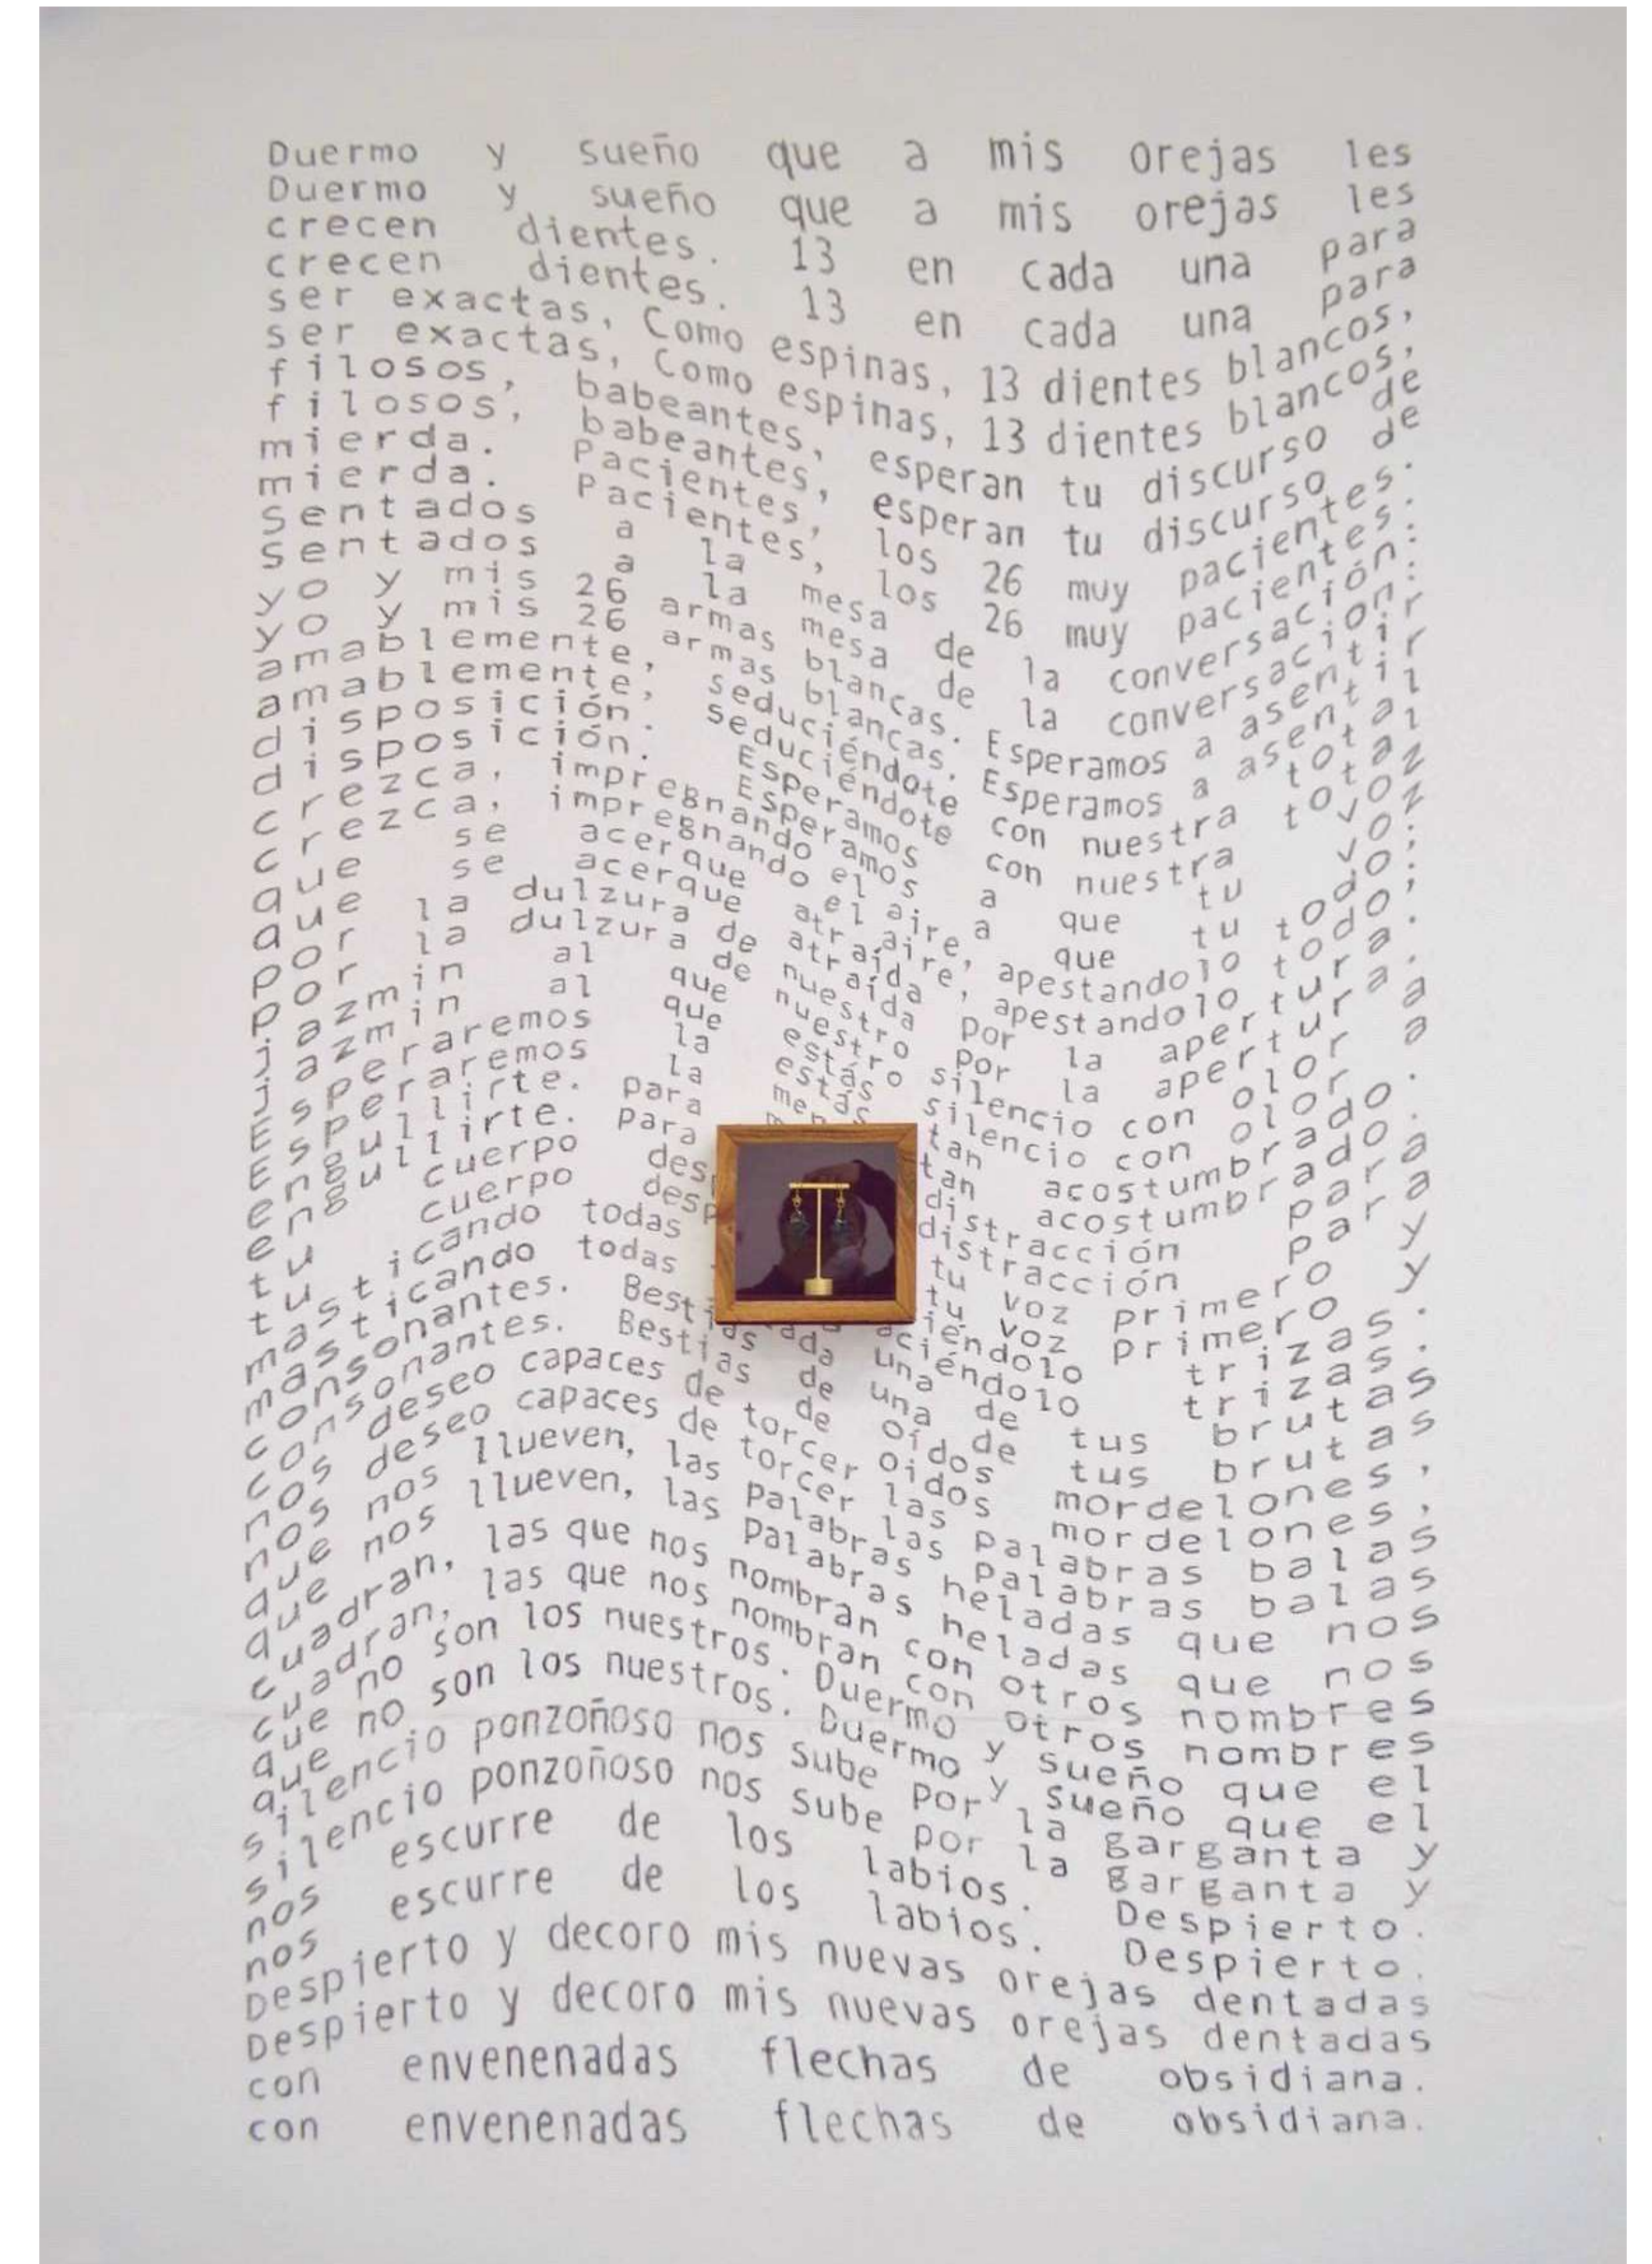 Duermo y sueño que a mis orejas les
Duermo y sueño que a mis orejas les
crecen dientes. 13 en cada una para
crecen dientes. 13 en cada una para
ser exactas, Como espinas, 13 dientes blancos,
ser exactas, Como espinas, 13 dientes blancos,
filosos, babeantes, esperan tu discurso de
filosos, babeantes, esperan tu discurso de
mierda. Pacientes, los 26 muy pacientes.
mierda. Pacientes, los 26 muy pacientes.
Sentados a la mesa de la conversación:
Sentados a la mesa de la conversación:
yo y mis 26 armas blancas. Esperamos a asentir
yo y mis 26 armas blancas. Esperamos a asentir
amablemente, seduciéndote con nuestra total
amablemente, seduciéndote con nuestra total
disposición. Esperamos a que tu voz
disposición. Esperamos a que tu voz
crezca, impregnando el aire, apestandolo todo;
crezca, impregnando el aire, apestandolo todo;
que se acerque atraída por la apertura.
que se acerque atraída por la apertura.
por la dulzura de nuestro silencio con olor a
por la dulzura de nuestro silencio con olor a
jazmin al que estás tan acostumbrado.
jazmin al que estás tan acostumbrado.
Esperaremos la distracción para
Esperaremos la distracción para
engullirte. Para tu voz primero y
engullirte. Para tu voz primero y
tu cuerpo trizas.
tu cuerpo trizas.
masticando todas una de tus brutas
masticando todas una de tus brutas
consonantes. Bestias de oídos mordelones,
consonantes. Bestias de oídos mordelones,
deseo capaces de torcer las palabras balas
deseo capaces de torcer las palabras balas
que nos llueven, las palabras heladas que nos
que nos llueven, las palabras heladas que nos
cuadran, las que nos nombran con otros nombres
cuadran, las que nos nombran con otros nombres
que no son los nuestros. Duermo y sueño que el
que no son los nuestros. Duermo y sueño que el
silencio ponzoñoso nos sube por la garganta y
silencio ponzoñoso nos sube por la garganta y
nos escurre de los labios. Despierto.
nos escurre de los labios. Despierto.
Despierto y decoro mis nuevas orejas dentadas
Despierto y decoro mis nuevas orejas dentadas
con envenenadas flechas de obsidiana.
con envenenadas flechas de obsidiana.